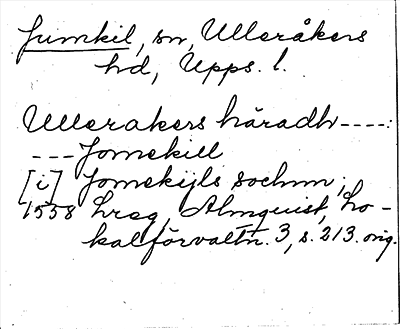 Jumkil, sn, Ulleråkers
hd, Upps. l.
Ullerakers häradh ----:
--- Jomekill
[i] Jomekijls sochnn;
1558 Lreg, Almquist, Lo-
kalförvaltn. 3, s. 213. orig.